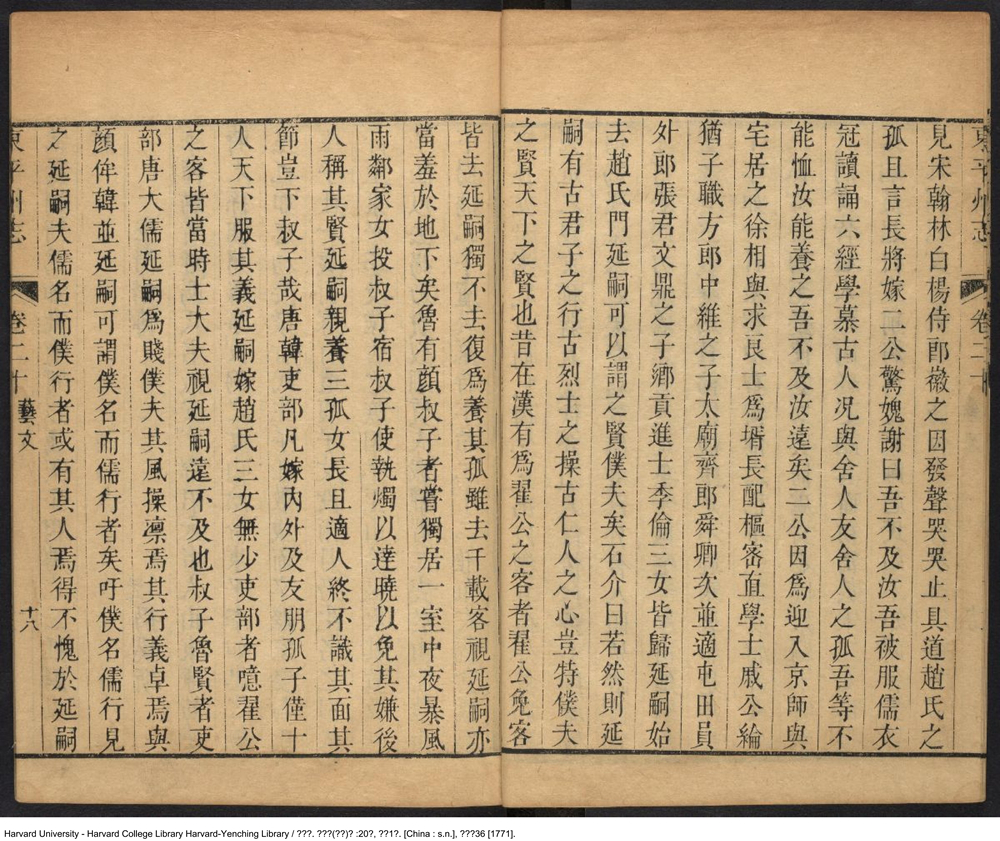 見宋翰林白楊侍郎徽之因發聲哭哭止具道趙氏之
孤且言長將嫁二公驚媿謝曰吾不及汝吾被服儒衣
冠讀誦六經學慕古人况與舍人友舍人之孤吾等不
能恤汝能養之吾不及汝遠矣二公因爲迎入京師與
宅居之徐相與求良士爲壻長配樞密直學士戚公綸
猶子職方郎中維之子太廟齊郎舜卿次並適屯田員
外郎張君文鼎之子鄉貢進士季倫三女皆歸延嗣始
去趙氏門延嗣可以謂之賢僕夫矣石介曰若然則延
嗣有古君子之行古烈士之操古仁人之心豈特僕夫
之賢天下之賢也昔在漢有爲翟公之客者翟公免客
皆去延嗣獨不去復爲養其孤雖去千載客視延嗣亦
當羞於地下矣魯有顏叔子者嘗獨居一室中夜暴風
雨鄰家女投叔子宿叔子使執燭以達曉以免其嫌後
人稱其賢延嗣親養三孤女長且適人終不識其面其
節豈下叔子哉唐韓吏部凡嫁內外及友朋孤子僅十
人天下服其義延嗣嫁趙氏三女無少吏部者噫翟公
之客皆當時士大夫視延嗣遠不及也叔子魯賢者吏
部唐大儒延嗣爲賤僕夫其風操凛焉其行義卓焉與
顏侔韓並延嗣可謂僕名而儒行者矣吁僕名儒行見
之延嗣夫儒名而僕行者或有其人焉得不愧於延嗣
東平州志 卷二十 藝文 十八
Harvard University - Harvard College Library Harvard-Yenching Library / ???. ???(??)? :20?, ??1?. [China : s.n.], ???36 [1771].